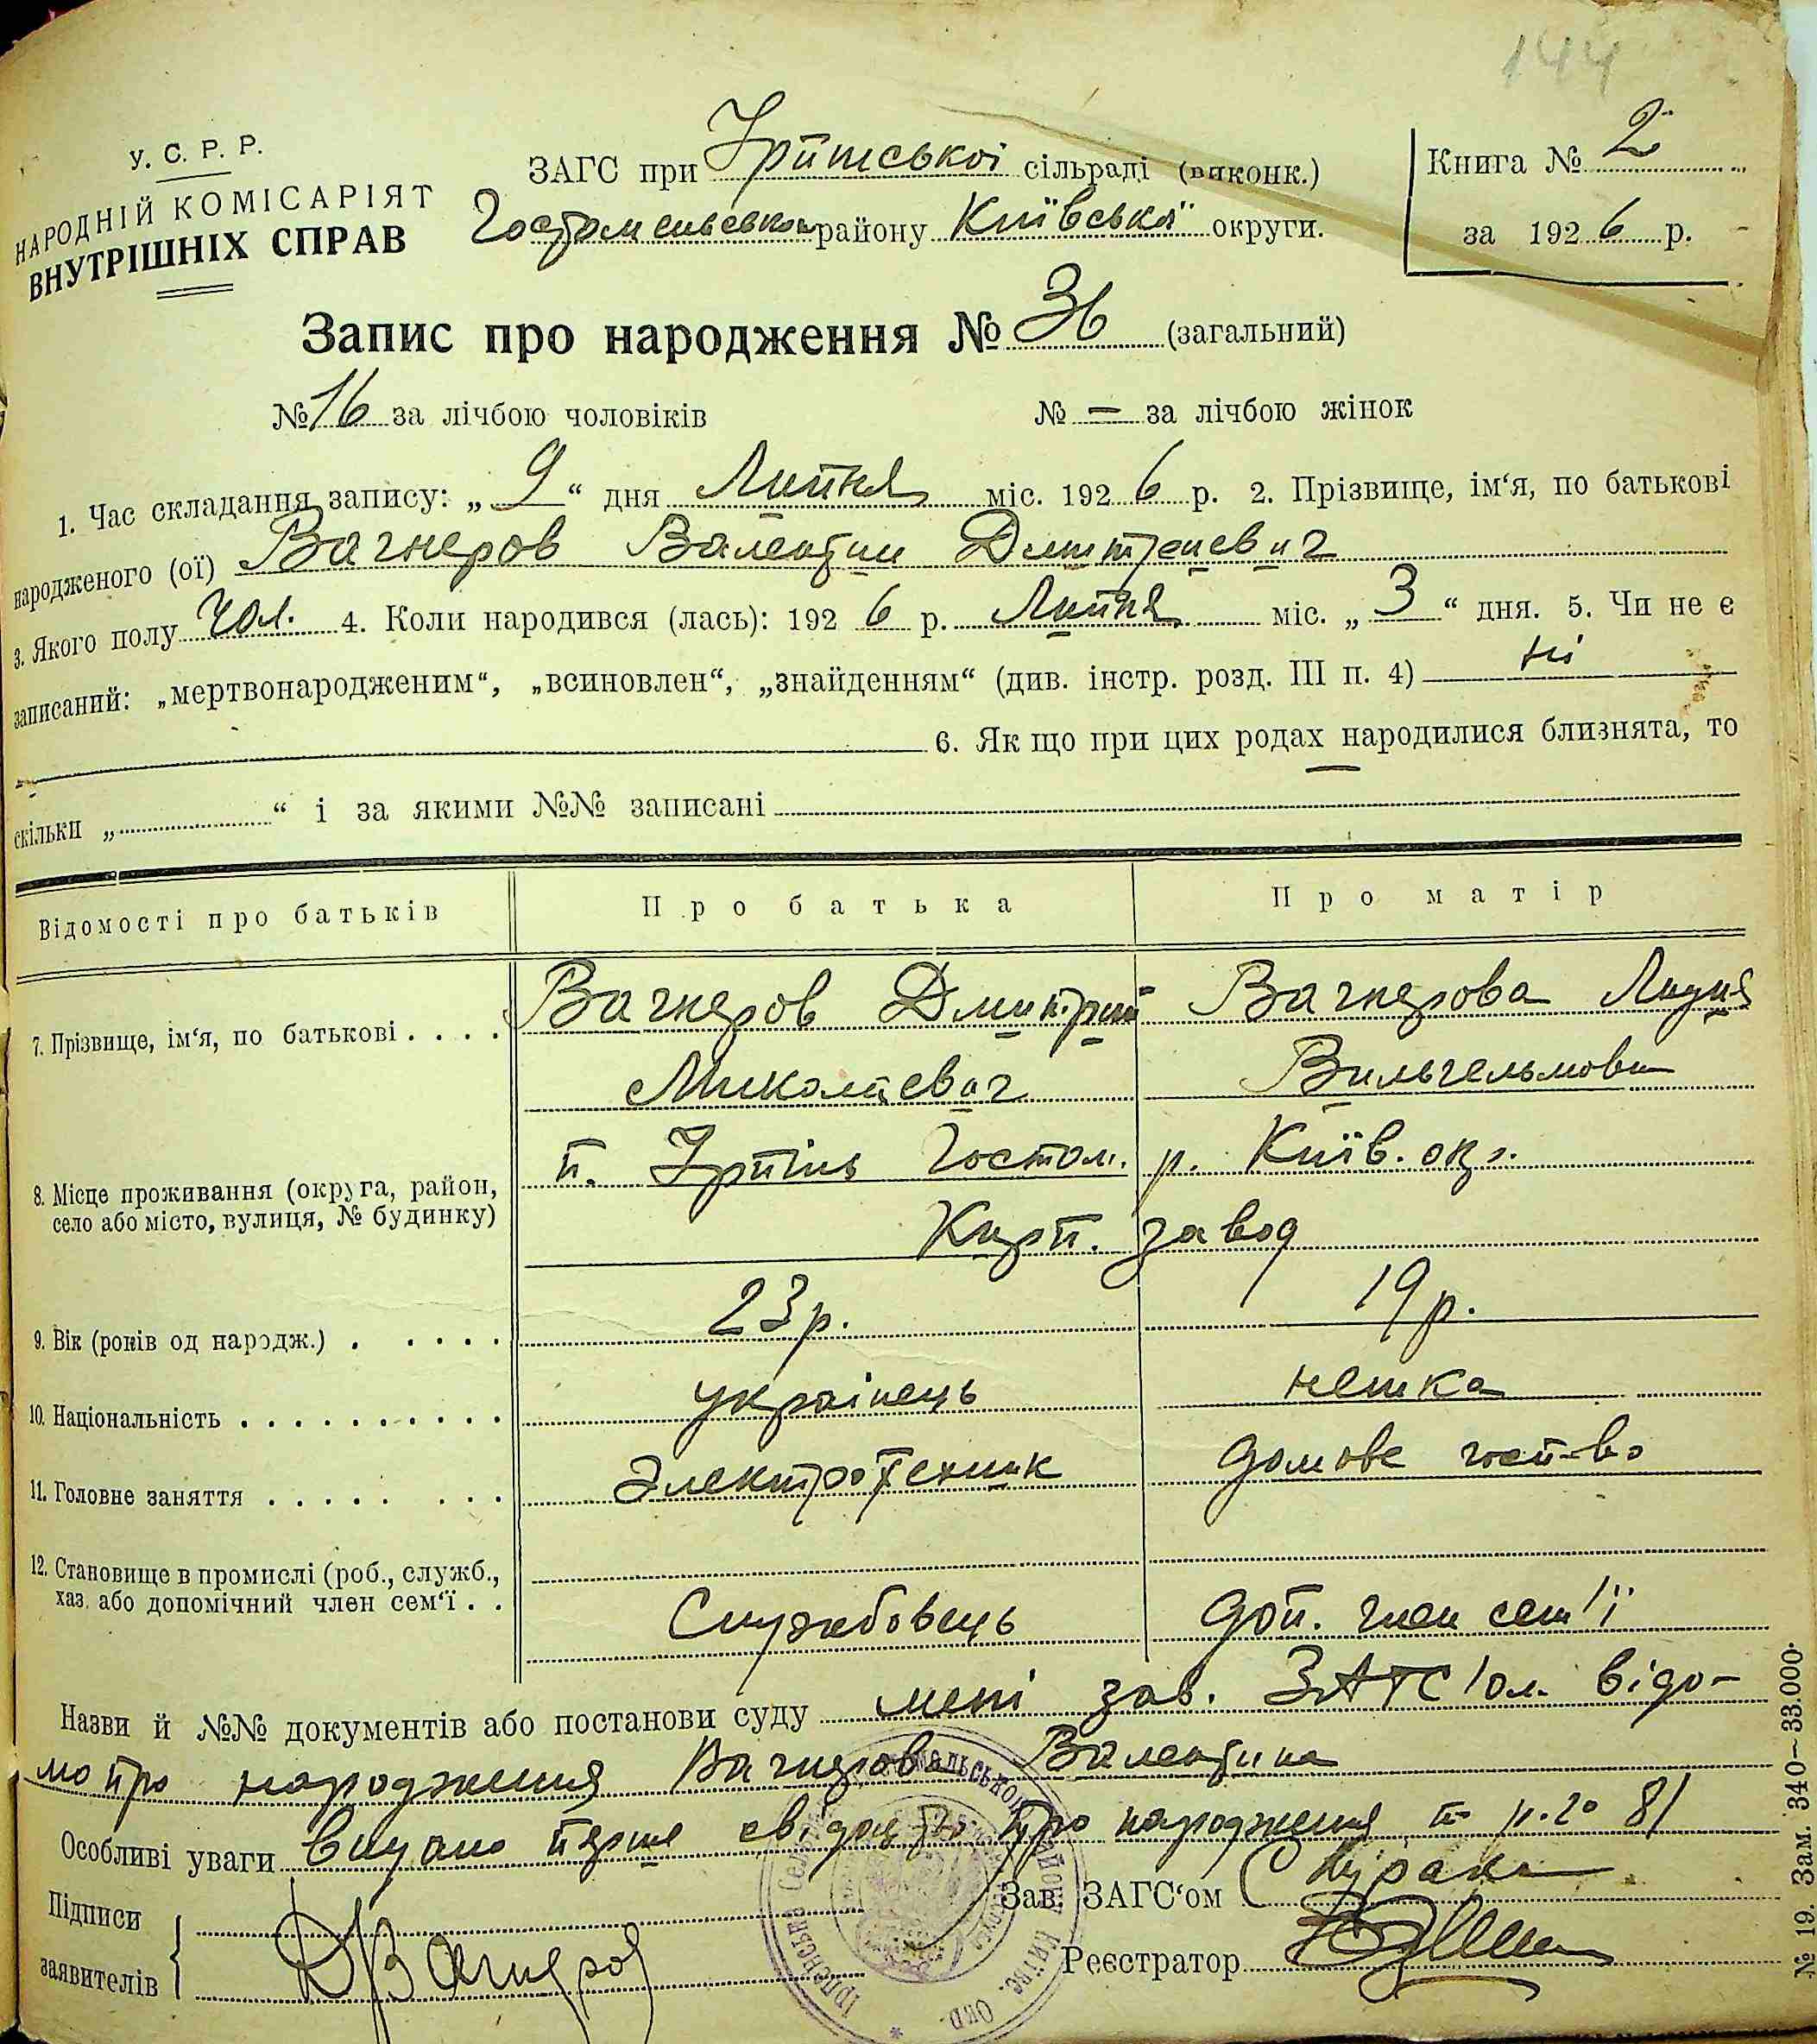 144
У. С. Р. Р.
НАРОДНІЙ КОМІСАРІЯТ
ВНУТРІШНІХ СПРАВ
ЗАГС при Ірпінської сільраді (виконк.)
Гостомельського району Київської округи.
Книга № 2
за 1926 р.
Запис про народження № 36 (загальний)
№ 16 за лічбою чоловіків № = за лічбою жінок
1. Час складання запису: „ 9 “ дня Липня міс. 1926 р. 2. Прізвище, ім‘я, по батькові
народженого (ої) Вагнеров Валентин Дмитриевич
3. Якого полу чол. 4. Коли народився (лась): 1926 р. Липня міс. „ 3 “ дня. 5. Чи не є
записаний: „мертвонародженим“, „всиновлен“, „знайденням“ (див. інстр. розд. III п. 4) ні
6. Як що при цих родах народилися близнята, то
скільки „ “ і за якими №№ записані
Відомості про батьків Про батька Про матір
7. Прізвище, ім‘я, по батькові . . . . Вагнеров Дмитрий Вагнерова Лидия
Миколаевич Вильгельмовна
8. Місце проживання (округа, район, село або місто, вулиця, № будинку) п. Ірпінь Гостом. р. Київ. окр.
Кирп. завод
9. Вік (років од народж.) . . . . . 23 р. 19 р.
10. Національність . . . . . . . . . . українець немка
11. Головне заняття . . . . . . . . Электротехник домове госп-во
12. Становище в промислі (роб., служб., хаз. або допомічний член сем‘ї . . Службовець доп. член сем'ї
Назви й №№ документів або постанови суду мені зав. ЗАГС'ом відо-
мо про народження Вагнерова Валентина
Особливі уваги видано перше свідоцтво про народження п р. го 81
Підписи
заявителів
ДВагнеров
Зав. ЗАГС‘ом
Реєстратор
№ 19. Зам. 340–33.000.